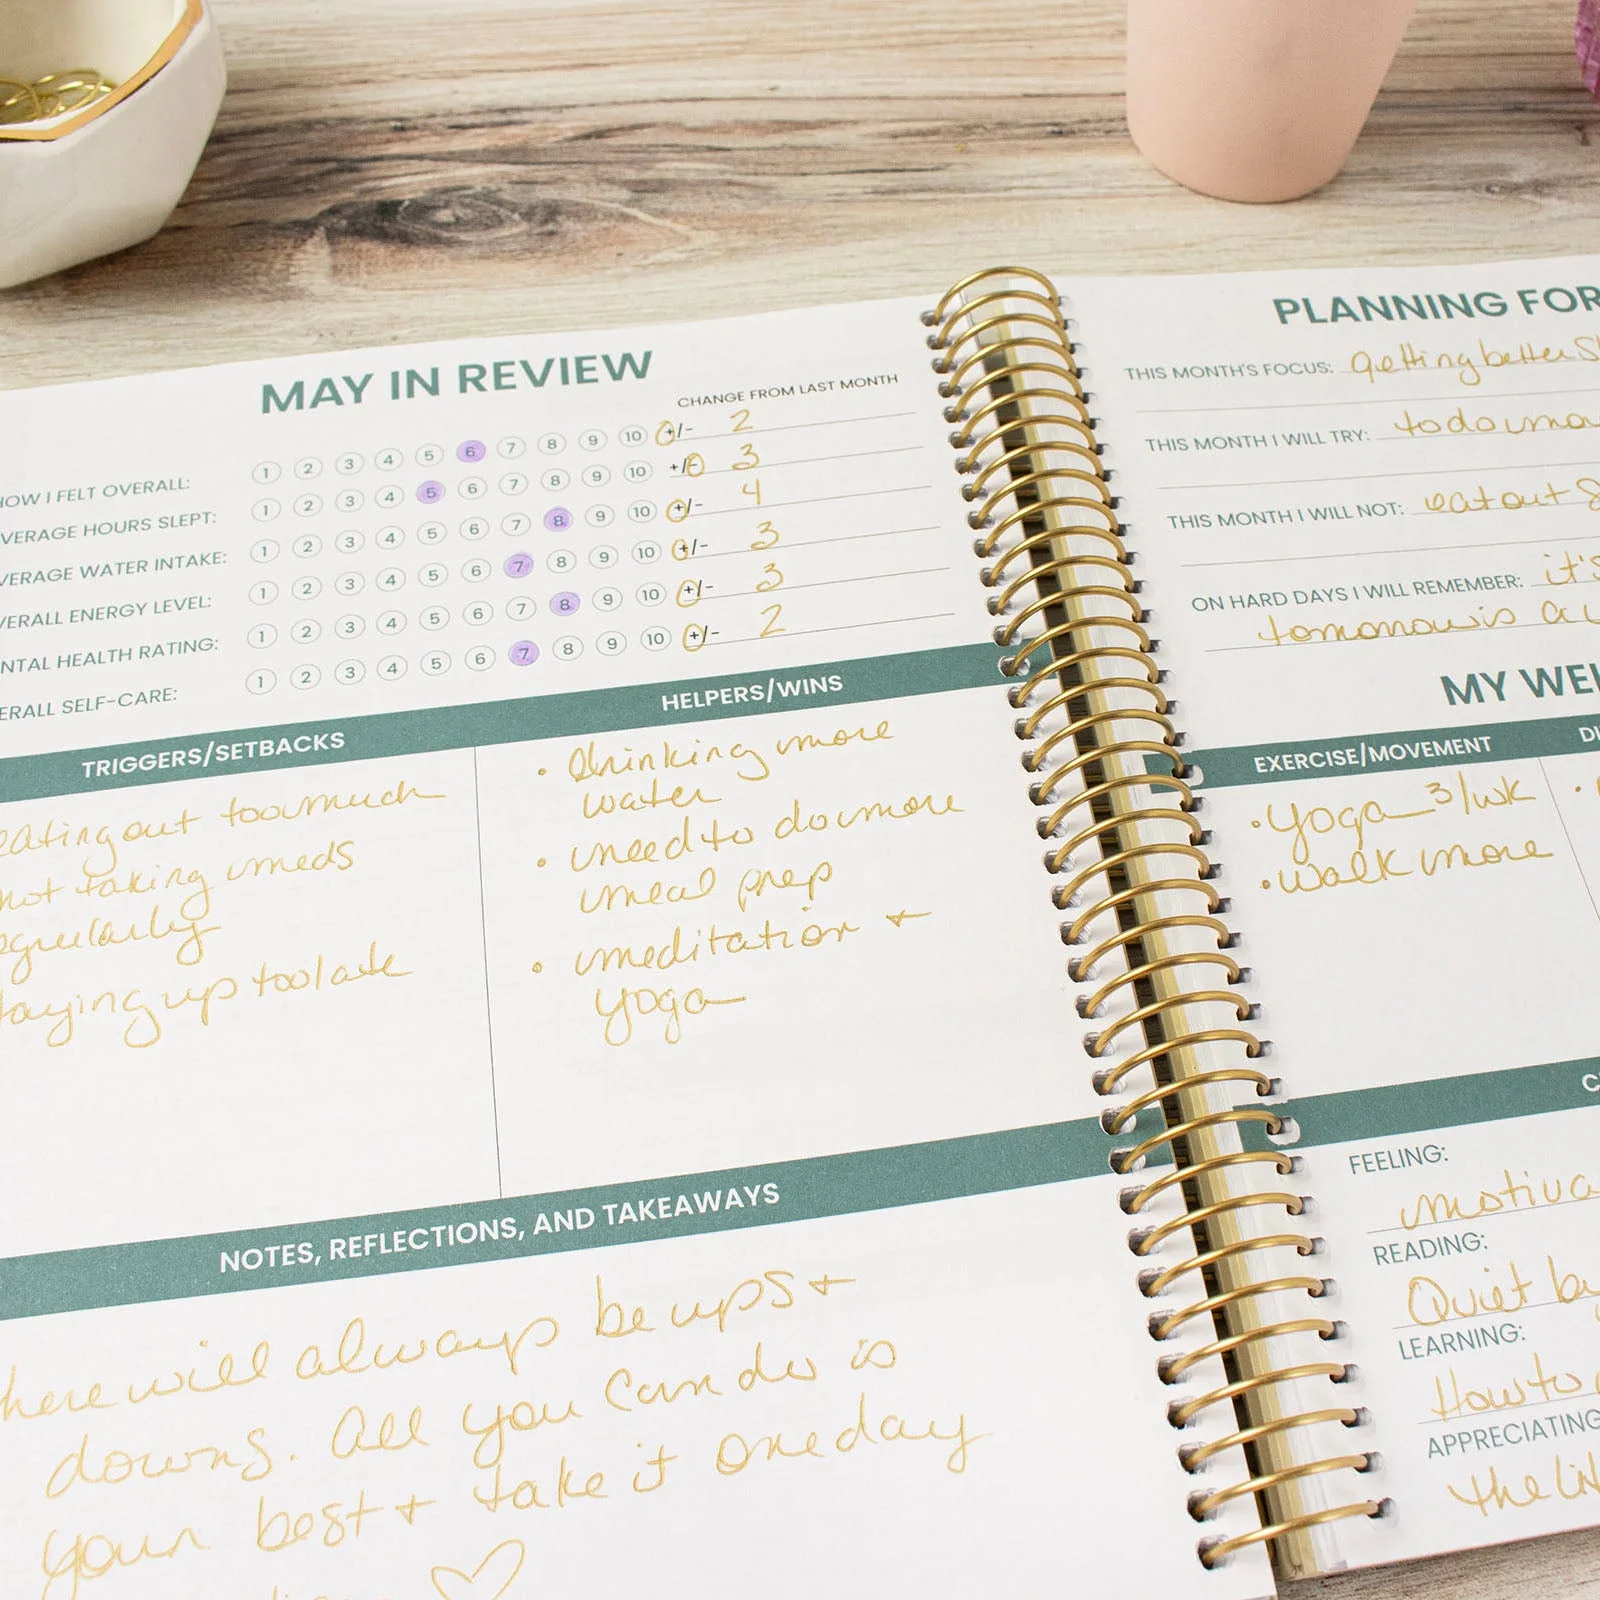 MAY IN REVIEW
CHANGE FROM LAST MONTH
HOW I FELT OVERALL: 1 2 3 4 5 6 7 8 9 10 +/- 2
VERAGE HOURS SLEPT: 1 2 3 4 5 6 7 8 9 10 +/- 3
VERAGE WATER INTAKE: 1 2 3 4 5 6 7 8 9 10 +/- 4
VERALL ENERGY LEVEL: 1 2 3 4 5 6 7 8 9 10 +/- 3
NTAL HEALTH RATING: 1 2 3 4 5 6 7 8 9 10 +/- 3
ERALL SELF-CARE: 1 2 3 4 5 6 7 8 9 10 +/- 2
TRIGGERS/SETBACKS
eating out too much
not taking meds
egularly
taying up too late
HELPERS/WINS
• drinking more
water
• need to do more
meal prep
• meditation +
yoga
NOTES, REFLECTIONS, AND TAKEAWAYS
here will always be ups +
downs. All you can do is
your best + take it one day
PLANNING FOR
THIS MONTH'S FOCUS: getting better
THIS MONTH I WILL TRY: to do mo
THIS MONTH I WILL NOT: eat out
ON HARD DAYS I WILL REMEMBER: it's
tomorrow is a
MY WEL
EXERCISE/MOVEMENT
• Yoga 3/wk
• walk more
DI
C
FEELING:
motiva
READING:
Quiet by
LEARNING:
How to
APPRECIATING
the lit